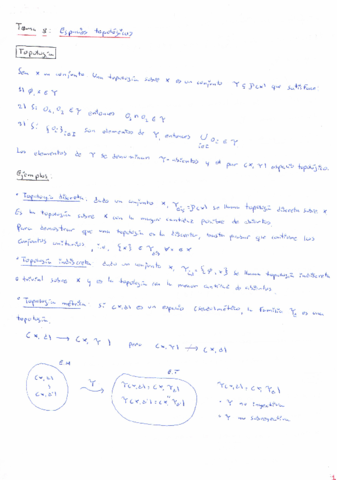 Tema 1: Espacios topológicos
Topología
Sea X un conjunto. Una topología sobre X es un conjunto τ ⊆ P(X) que satisface:
1) ∅, X ∈ τ
2) Si O₁, O₂ ∈ τ entonces O₁ ∩ O₂ ∈ τ
3) Si {Oᵢ}ᵢ∈I son elementos de τ, entonces ⋃ Oᵢ ∈ τ
i∈I
Los elementos de τ se denominan τ-abiertos y al par (X, τ) espacio topológico.
Ejemplos:
• Topología discreta: Dado un conjunto X, = P(X) se llama topología discreta sobre X
Es la topología sobre X con la mayor cantidad posible de abiertos.
Para demostrar que una topología es la discreta, basta probar que contiene los
conjuntos unitarios, i.e, {x} ∈
• Topología indiscreta: Dado un conjunto X, = {∅, X} se llama topología indiscreta
o trivial sobre X y es la topología con la menor cantidad de abiertos.
• Topología métrica: Si (X, d) es un espacio métrico, la familia es una
topología.
(X, d) → (X, τ) pero (X, τ) (X, d)
E.M E.T
(X, d)
(X, d')
τ
• τ no inyectiva
• τ no sobreyectiva
1